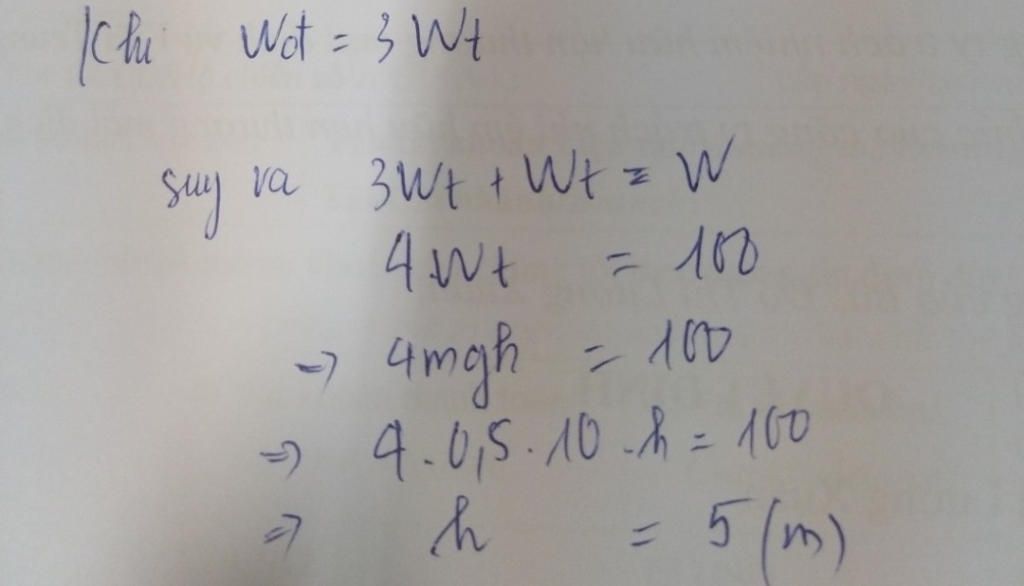 Khi Wđ = 3 Wt
suy ra 3Wt + Wt = W
4.Wt = 100
=> 4mgh = 100
=> 4.0,5.10.h = 100
=> h = 5 (m)